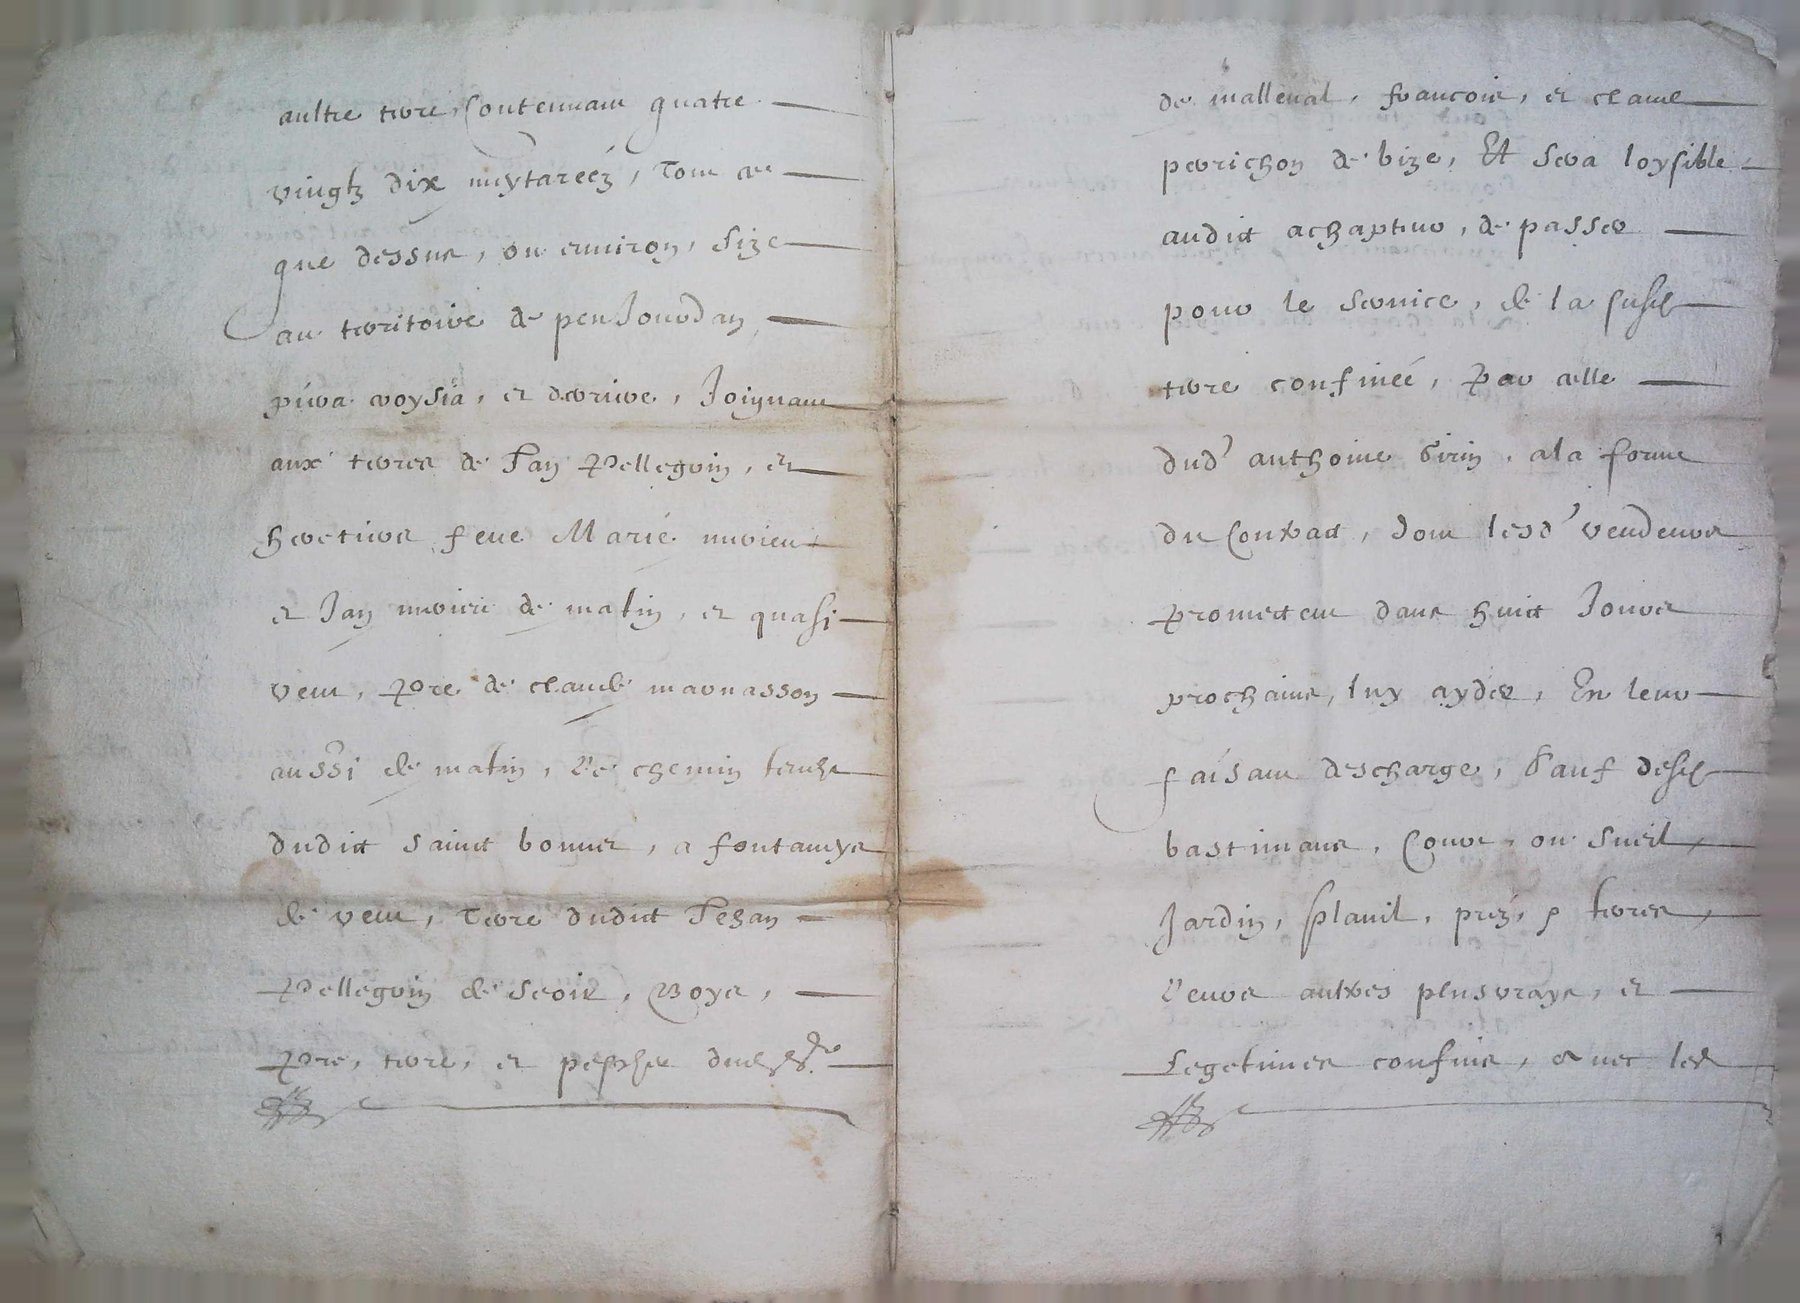 aultre terre, Contennant quatre
vingtz dix meytareéz, Tout ce
que dessus, ou environ, Size
au territoire de peu Jourdan
et derrive, Joignant
aux terres de Jan Pellegrin, et
heretiers feue Marie
et Jan de matin, et quasi
vent, Pre de claude marnasson
aussi de matin, Le chemin
dudict sainct bonnet, a
de vent, Terre dudict Jehan
Pellegrin de Seoir, Boys,
Pre, terre, et
de malleval, francois, et claude
perrichon de bize, Et Sera loysible
audict achapteur, de passer
pour le Service, de la susd
terre confineé, Par celle
dud' anthoine Girin, a la forme
du Contract, dont lesd' vendeurs
Promettent dans huict Jours
prochains, luy ayder, En leur
faisant descharge, Sauf desd
bastimans, Court, ou Sueil,
Jardin, Plauil, prez, terres,
Leurs aultres plus vrays, et
Legetimes confins, avec les